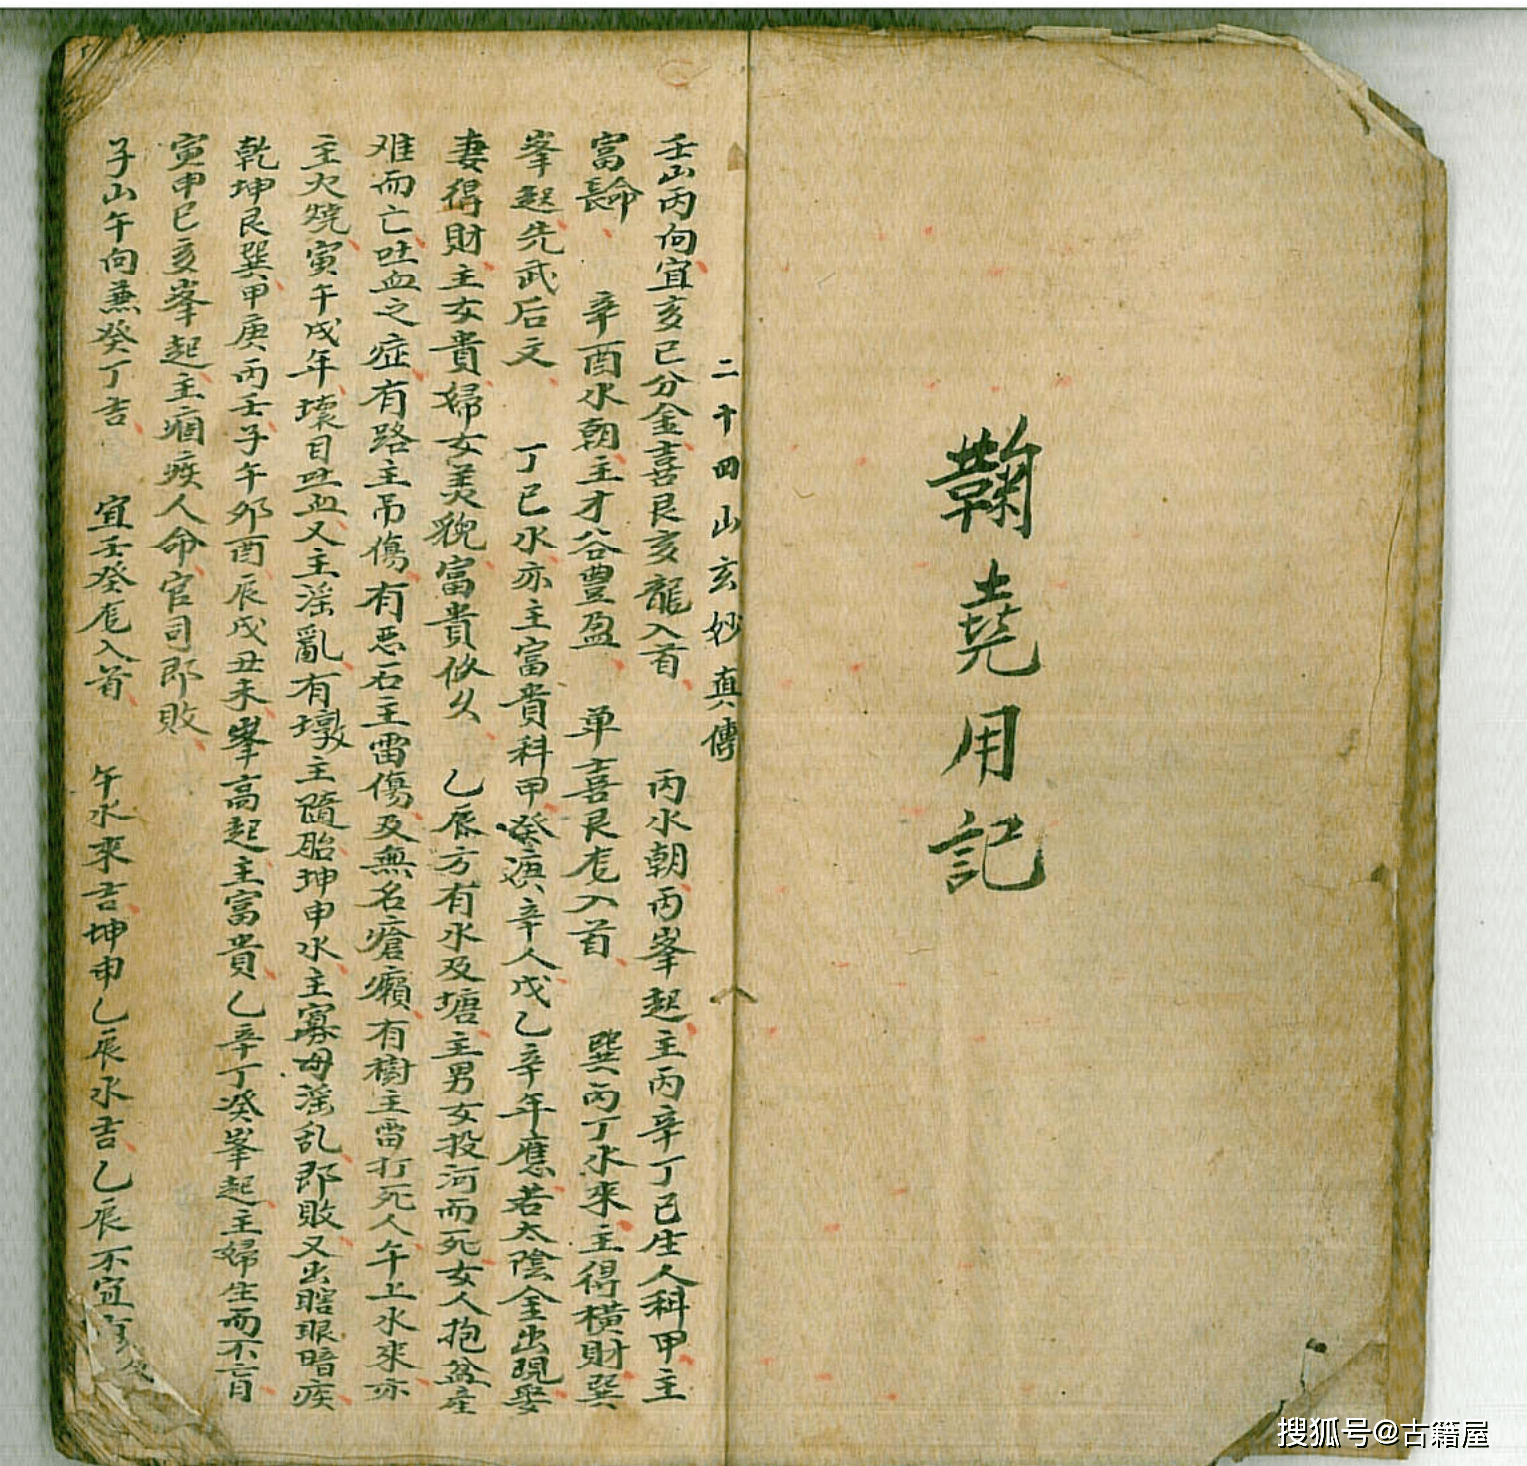 鞠堯用記
二十四山玄妙真傳
壬山丙向宜亥巳分金喜艮亥龍入首 丙水朝丙峯起主丙辛丁己生人科甲主
富長命 辛酉水朝主才谷豐盈 单喜艮尨入首 巽丙丁水來主得橫財巽
峯起先武后文 丁巳水亦主富貴科甲癸 辛人戊乙辛年應若太陰金出現娶
妻得財主女貴婦女美貌富貴攸久 乙辰方有水及塘主男女投河而死女人抱盆產
难而亡吐血之症有路主吊傷有惡石主雷傷及無名瘡癩有樹主雷打死人午上水來亦
主火燒寅午戌年壞目吐血又主淫亂有墩主隨胎坤申水主寡母淫乱郎敗又出瞎眼暗疾
乾坤艮巽甲庚丙壬子午夘酉辰戌丑未峯高起主富貴乙辛丁癸峯起主婦生而不育
寅申巳亥峯起主痼疾人命官司郎敗
子山午向兼癸丁吉 宜壬癸尨入首 午水來吉坤申乙辰水吉乙辰不宜
搜狐号@古籍屋